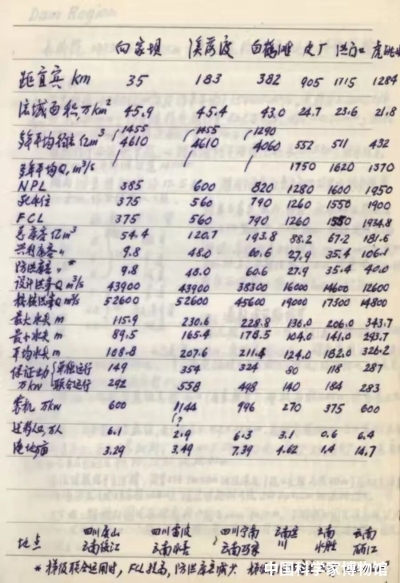 Dam Region
向家坝 溪落渡 白鹤滩 皮厂 洪门口 虎跳峡
距宜宾 km 35 183 382 905 1715 1284
流域面积, 万km² 45.9 45.4 43.0 24.7 23.6 21.8
多年平均径流 亿m³ 1455 4610 1455 4610 1290 4060 552 511 432
多年平均Q, m³/s 1750 1620 1370
NPL 385 600 820 1280 1600 1950
死水位 375 560 790 1260 1550 1900
FCL 375 560 790 1260 1550 1934.8
总库容 亿m³ 54.4 120.7 193.8 88.2 67.2 181.6
兴利库容 〃 9.8 48.0 60.6 27.9 35.4 106.1
防洪库容 〃 * 9.8 48.0 60.6 27.9 35.4 40.0
设计洪量Q m³/s 43900 43900 38300 16000 14600 12600
校核洪量Q m³/s 52600 52600 45600 19000 17300 14800
最大水头 m 115.9 230.6 228.8 136.0 206.0 343.7
最小水头 m 89.5 165.4 178.5 104.0 141.0 293.7
平均水头 m 108.8 207.6 211.4 124.0 182.0 326.2
保证出力 单独运行 149 354 324 80 118 287
万kw 联合运行 292 558 498 140 184 283
装机 万kw 600 1144 996 270 375 600
(?
迁移人口, 万人 6.1 2.9 6.3 3.1 0.6 6.4
淹地 万亩 3.29 3.49 7.39 4.62 1.4 14.7
四川屏山 四川雷波 四川宁南 云南 云南 云南
地点 云南绥江 云南永善 云南巧家 永胜 丽江
* 梯级联合运用时, FCL抬高, 防洪库容减少
中国科学家博物馆